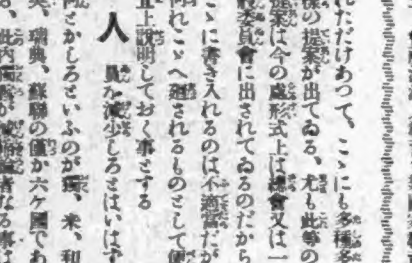 れただけあつて、こゝにも多種多
樣の提案が出てゐる、尤も此等の
提案は今の處形式上は總會又は一
般委員會に出されてゐるのだから
こゝに書き入れるのは不適當だが
何れこゝへ廻されるものとして便
宜上說明しておく事とする
人
員を減少しろとはいはず
何とかしろといふのが獨、米、利
奥、瑞典、蘇聯の僅か六ケ國であ
る、此內
なる事は